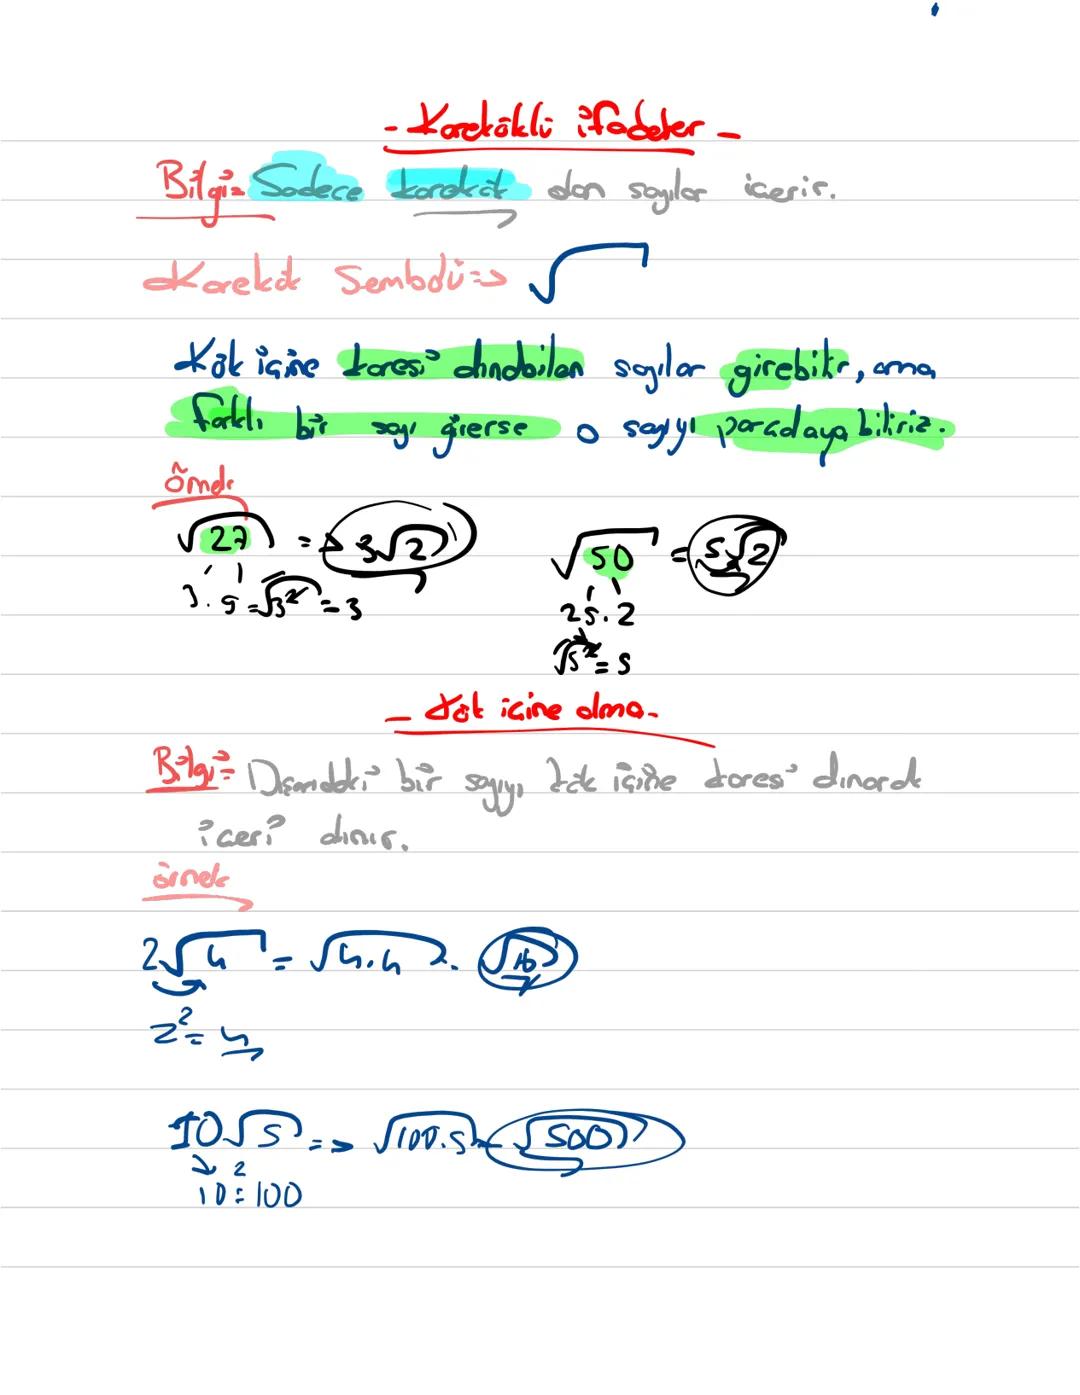 - Kareköklü ifadeler -
Bilgi= Sadece karekök dan sayılar içerir.
Karekök Sembolü=> √
Kök içine karesi alınabilen sayılar girebilir, ama
farklı bir sayı girerse o sayıyı parçalayabiliriz.
Örnek
√27 => 3√2 √50 = 5√2
3.9=√3²=3 25.2
√5²=5
- Kök içine alma-
Bilgi= Dışarıdaki bir sayıyı kök içine karesi alınarak
içeri alınır.
örnek
2√4 = √4.4 = √16
2²=4
10√5 => √100.5 = √500
10²=100